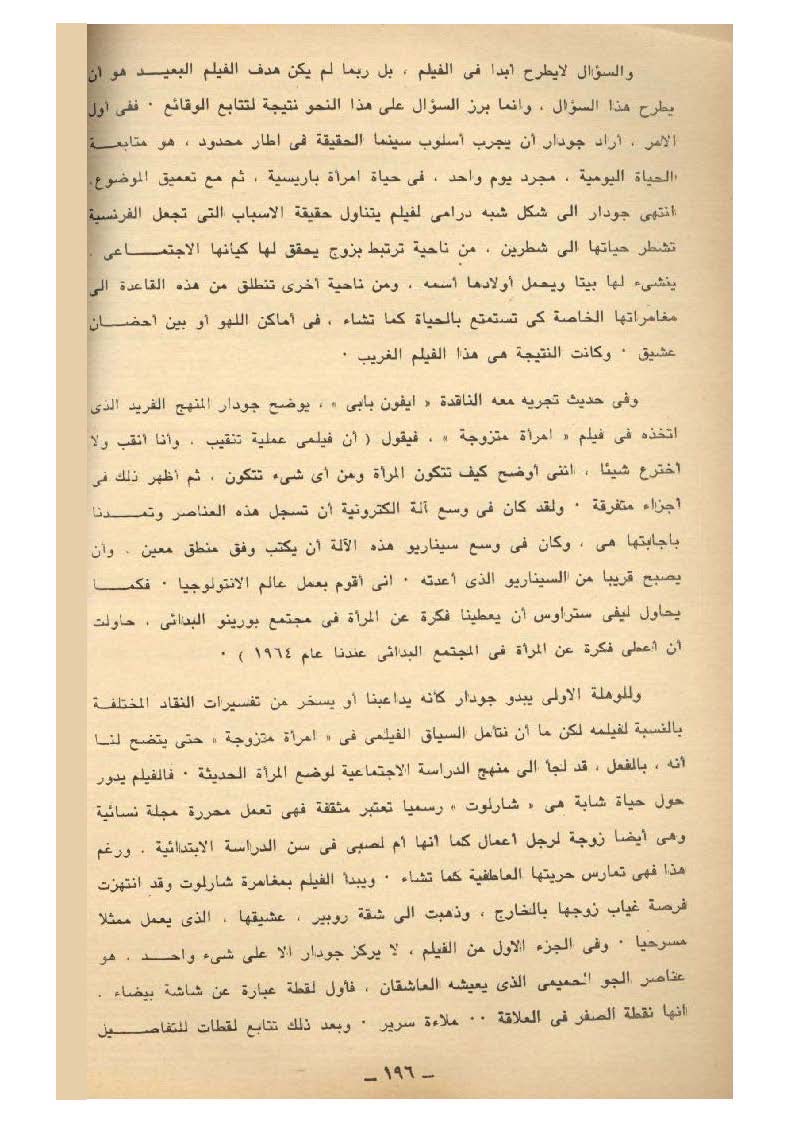 والسؤال لايطرح أبدا فى الفيلم ، بل ربما لم يكن هدف الفيلم البعيـــد هو أن
يطرح هذا السؤال ، وانما برز السؤال على هذا النحو نتيجة لتتابع الوقائع · ففى أول
الامر ، أراد جودار أن يجرب أسلوب سينما الحقيقة فى اطار محدود ، هو متابعـــة
الحياة اليومية ، مجرد يوم واحد ، فى حياة امرأة باريسية ، ثم مع تعميق الموضوع.
انتهى جودار الى شكل شبه درامى لفيلم يتناول حقيقة الاسباب التى تجعل الفرنسية
تشطر حياتها الى شطرين ، من ناحية ترتبط بزوج يحقق لها كيانها الاجتمـــاعى .
ينشىء لها بيتا ويحمل أولادها أسمه ، ومن ناحية أخرى تنطلق من هذه القاعدة الى
مغامراتها الخاصة كى تستمتع بالحياة كما تشاء ، فى أماكن اللهو أو بين أحضــان
عشيق · وكانت النتيجة هى هذا الفيلم الغريب ·
وفى حديث تجريه معه الناقدة « ايفون بابى » ، يوضح جودار المنهج الفريد الذى
اتخذه فى فيلم « امرأة متزوجة » ، فيقول ( أن فيلمى عملية تنقيب . وأنا أنقب ولا
أخترع شيئا ، اننى أوضح كيف تتكون المرأة ومن أى شىء تتكون ، ثم أظهر ذلك فى
أجزاء متفرقة · ولقد كان فى وسع آلة الكترونية أن تسجل هذه العناصر وتمـــدنا
باجابتها هى ، وكان فى وسع سيناريو هذه الآلة أن يكتب وفق منطق معين . وأن
يصبح قريبا من السيناريو الذى أعدته · انى أقوم بعمل عالم الانتولوجيا · فكمـــا
يحاول ليفى ستراوس أن يعطينا فكرة عن المرأة فى مجتمع بورينو البدائى ، حاولت
أن أعطى فكرة عن المرأة فى المجتمع البدائى عندنا عام ١٩٦٤ ) ·
وللوهلة الاولى يبدو جودار كأنه يداعبنا أو يسخر من تفسيرات النقاد المختلفـــة
بالنسبة لفيلمه لكن ما أن نتأمل السياق الفيلمى فى « امرأة متزوجة » حتى يتضح لنـــا
أنه ، بالفعل ، قد لجأ الى منهج الدراسة الاجتماعية لوضع المرأة الحديثة · فالفيلم يدور
حول حياة شابة هى « شارلوت » رسميا تعتبر مثقفة فهى تعمل محررة مجلة نسائية
وهى أيضا زوجة لرجل أعمال كما أنها أم لصبى فى سن الدراسة الابتدائية . ورغم
هذا فهى تمارس حريتها العاطفية كما تشاء · ويبدأ الفيلم بمغامرة شارلوت وقد انتهزت
فرصة غياب زوجها بالخارج ، وذهبت الى شقة روبير ، عشيقها ، الذى يعمل ممثلا
مسرحيا · وفى الجزء الاول من الفيلم ، لا يركز جودار الا على شىء واحـــد ، هو
عناصر الجو الحميمى الذى يعيشه العاشقان ، فأول لقطة عبارة عن شاشة بيضاء .
أنها نقطة الصفر فى العلاقة ·· ملاءة سرير · وبعد ذلك تتابع لقطات للتفاصـــيل
– ١٩٦ –